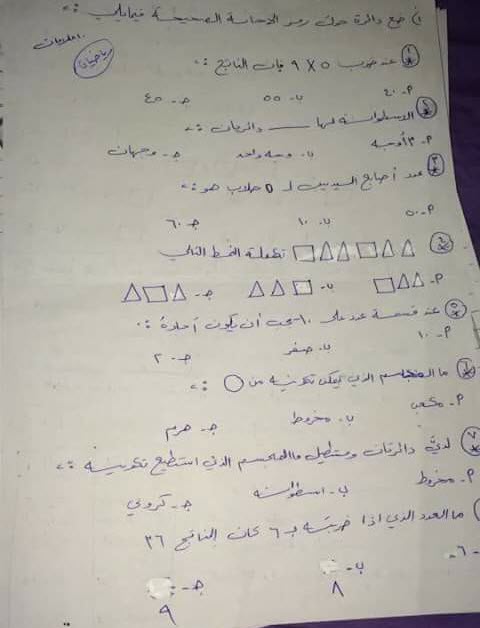 ١) ضع دائرة حول رمز الاجابة الصحيحة فيما يلي :-
رياضيات
١ عند ضرب ٥ × ٩ فان الناتج :-
أ- ٤٠ ب- ٥٥ ج- ٤٥
٢ الاسطوانة لها ــــــ دائرتان :-
أ- ٣ أوجه ب- وجه واحد ج- وجهان
٣ عدد أصابع اليدين لـ ٥ طلاب هو :-
أ- ٥٠ ب- ١٠ ج- ٦٠
٤ تكملة النمط التالي
أ- ب- ج-
٥ عند قسمة عدد على ١٠ يجب أن يكون آحاده :-
أ- ١٠ ب- صفر ج- ٢٠
٦ ما المجسم الذي يمكن تكوينه من :-
أ- مكعب ب- مخروط ج- هرم
٧ لديّ دائرتان ومستطيل ما المجسم الذي استطيع تكوينه :-
أ- مخروط ب- اسطوانة ج- كروي
ما العدد الذي اذا ضربته بـ ٦ كان الناتج ٣٦
٦- ب- ٨ ج- ٩